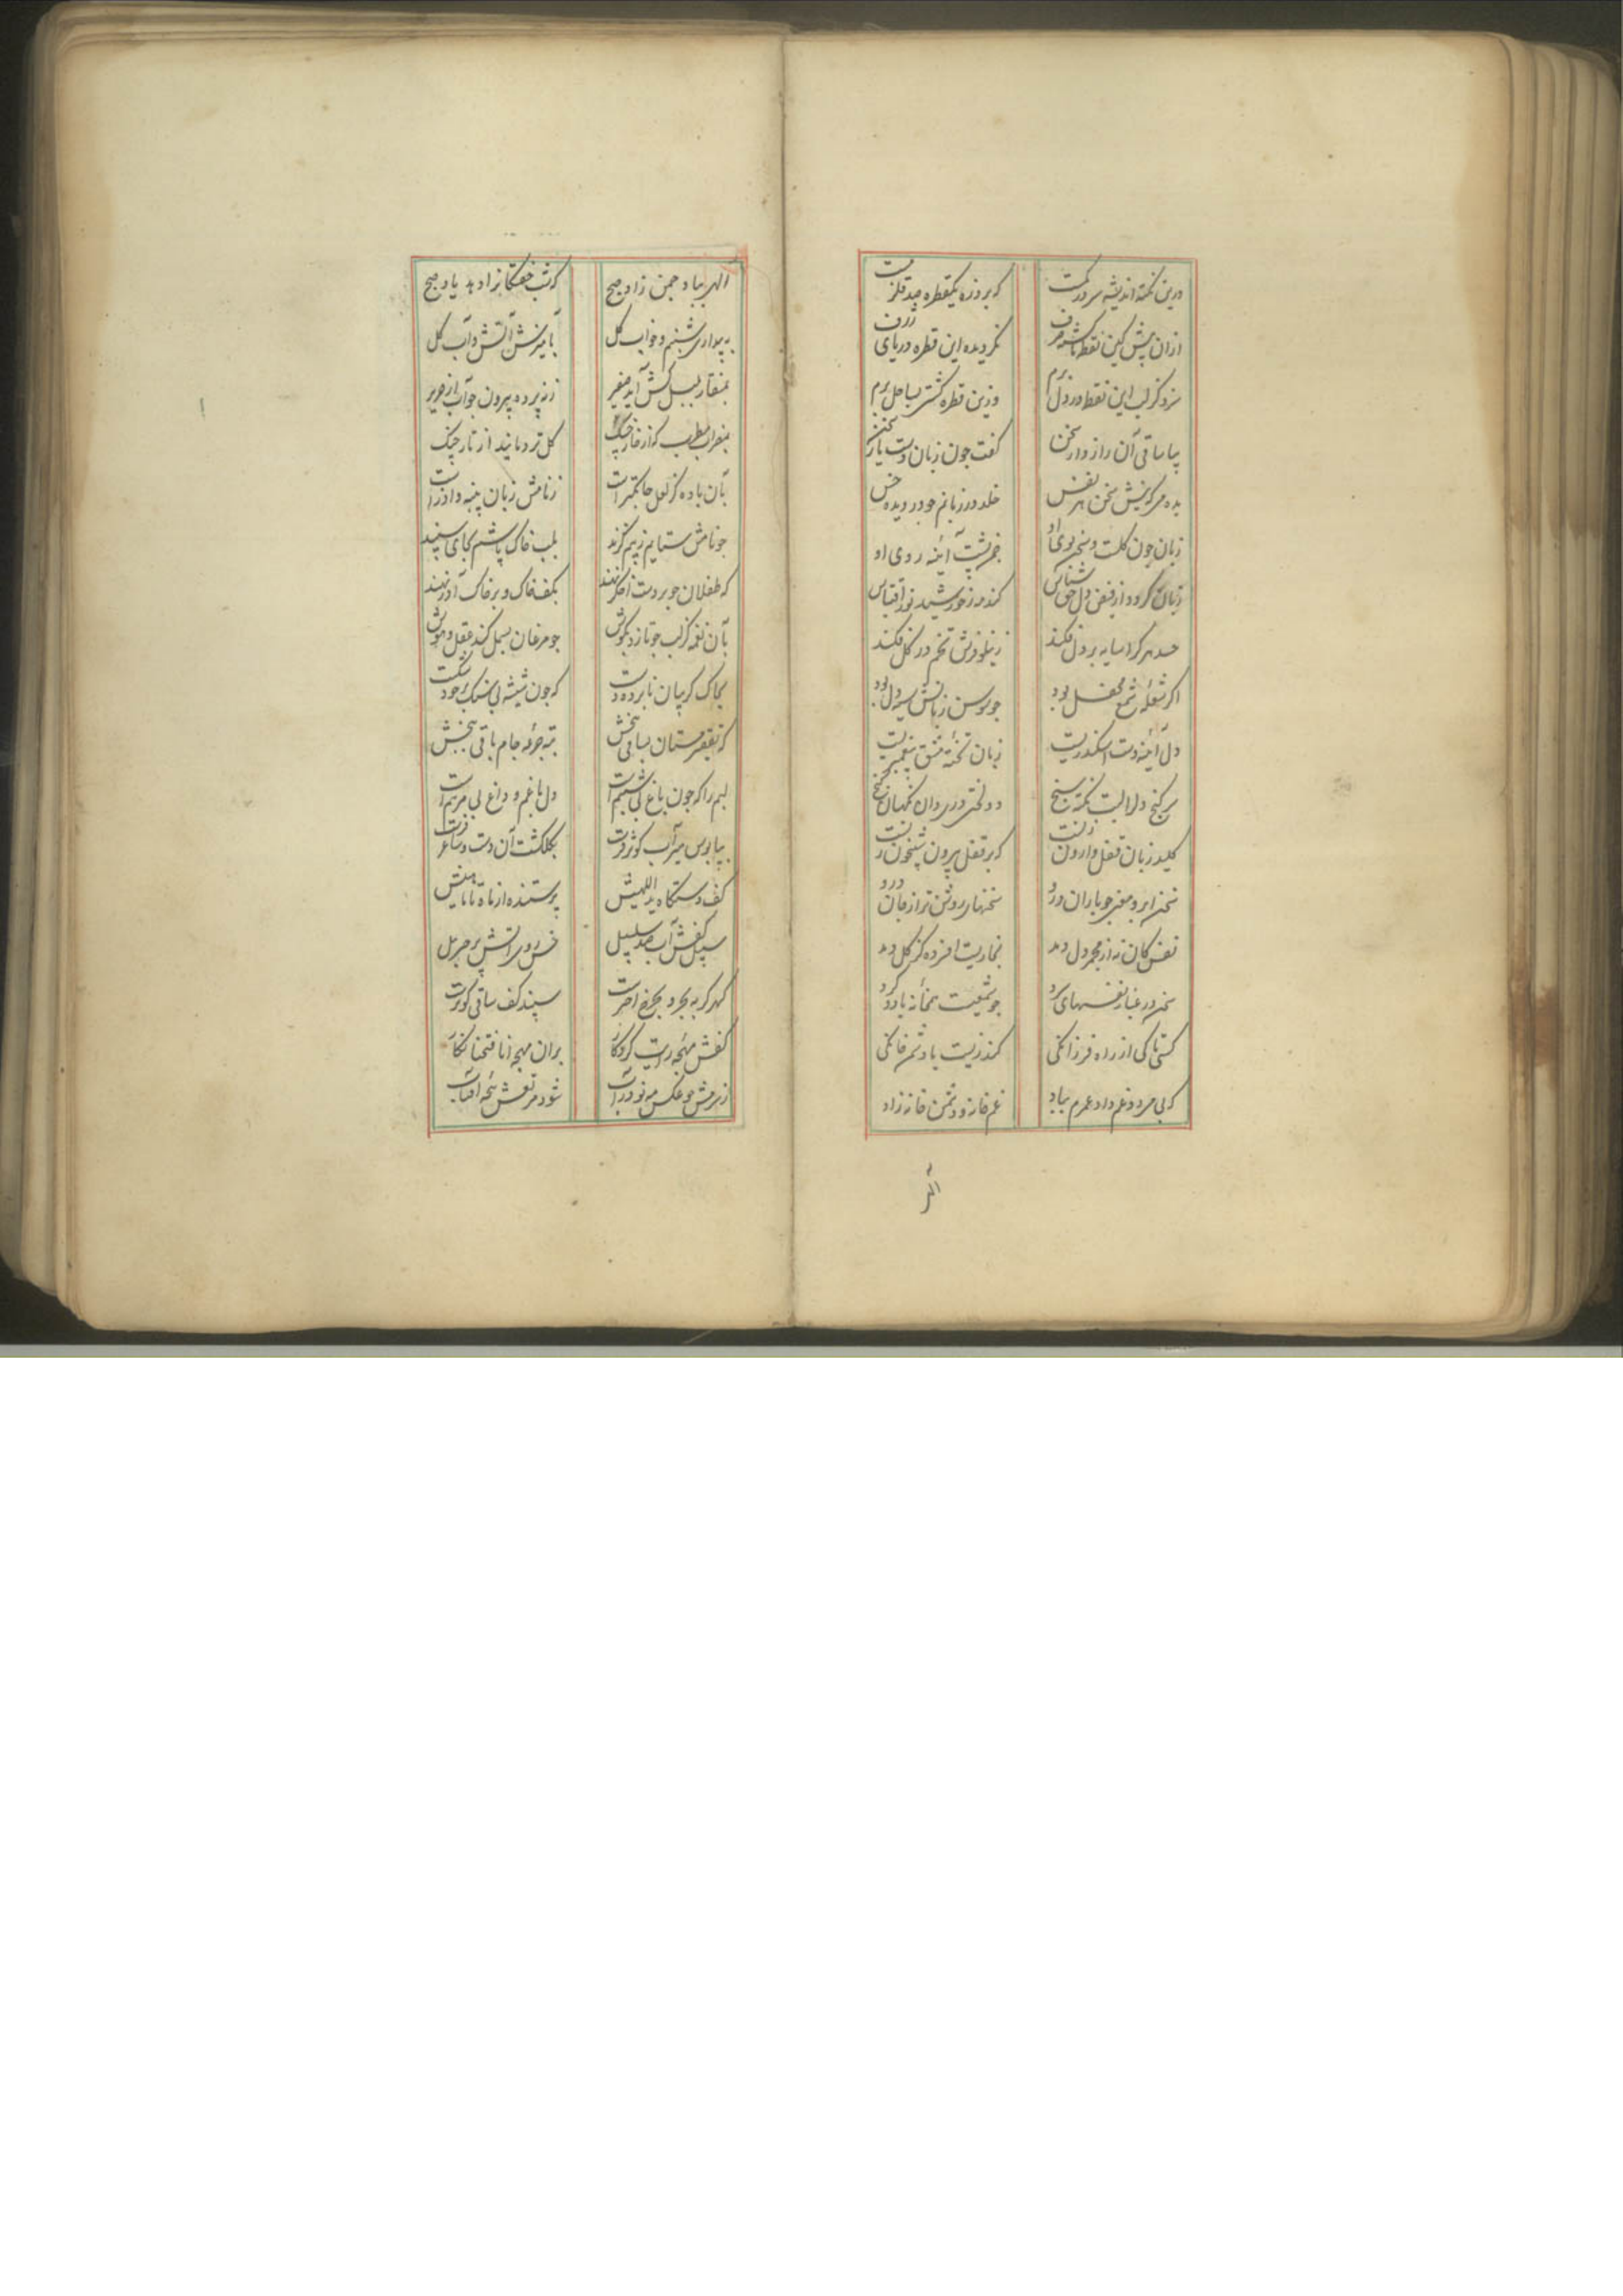 درین نکته اندیشه سر در کمست
که بر وزه یکقطره صد قلزمست
ازان پیش کین نقطه باشد حرف
نگردیده این قطره دریای ژرف
سزد کز لب این نقطه در دل برم
وزین قطره کشتی بساحل برم
بیا ساقی آن رازدار سخن
کفت چون زبان دست یار سخن
بده می که نیش سخن هر نفس
خلد در زبانم چو در دیده خس
زبان چون گلست و سخن بوی او
خبر پشت آئینه روی او
زبان گردد از فیض دل حق شناس
کند مه ز خورشید نور اقتباس
حسد هر کرا سایه بر دل فکند
ز نیلوفرش تخم در گل فکند
اگر شعله شمع محفل بود
چو سوسن زبانش سیه دل بود
دل آئینه دست اسکندریست
زبان تخته مشق پیغمبریست
سر گنج دلها لب نکته سنج
دو لختی در و دان نگهبان گنج
کلید زبان قفل وارون زنست
که بر قفل بیرون شبیخون زنست
سخن ابر و معنی چو باران درو
سخنهای روشن تر از جان درو
نفس کان نه از مجمر دل دمد
بخاریست افسرده کز گل دمد
سخن در غبار نفسهای سرد
چو شمعیست بیخانه باد کرد
سخن تا کی از راه فرزانگی
گذر نیست با دشمن خانگی
که بی مرد و غم داد عمرم بباد
غم خانه و دشمن خانه زاد
الهی
الهی بباد چمن زاد صبح
که شب خفتگانرا دهد یاد صبح
به بیداری شبنم و خواب گل
بآمیزش آتش و آب گل
بمنقار بلبل کش آید صفیر
ز نه پرده بیرون چو آب از حریر
بمضراب مطرب که از خار چنگ
گل تر دماند از تار چنگ
بآن باده کز لعل جانکمترست
ز نامش زبان پنبه و آذرست
چو نامش ستایم ز بیم گزند
بلب خاک پاشم بجای سپند
که طفلان چو بر دست اخگر نهند
بکف خاک و بر خاک آذر نهند
بآن نغمه کز لب چو تازد بگوش
چو مرغان بسمل کند عقل و هوش
بچاک گریبان نابرده دست
که چون شیشه بی سنگ بر خود شکست
که تقصیر مستان بساقی ببخش
به ته جرعه جام باقی ببخش
لبم را که چون باغ بی شبنم است
دل با غم و داغ بی مرهم است
بپابوس میرآب کوثر فرست
بگلگشت آن دست و ساغر فرست
کف دستگاه ید اللهیش
پرستنده از ماه تا ماهیش
سبیل کفش آب صد سلسبیل
خس روی آتش پر جبرئیل
گهر گر به بحر و بچرخ اخترست
سپند کف ساقی کوثرست
کفش مهجه رایت کردگار
بران مهجه انا فتحنا نگار
ز سرمش چو عکس مه نو در آب
شود مرتعش پنجه آفتاب